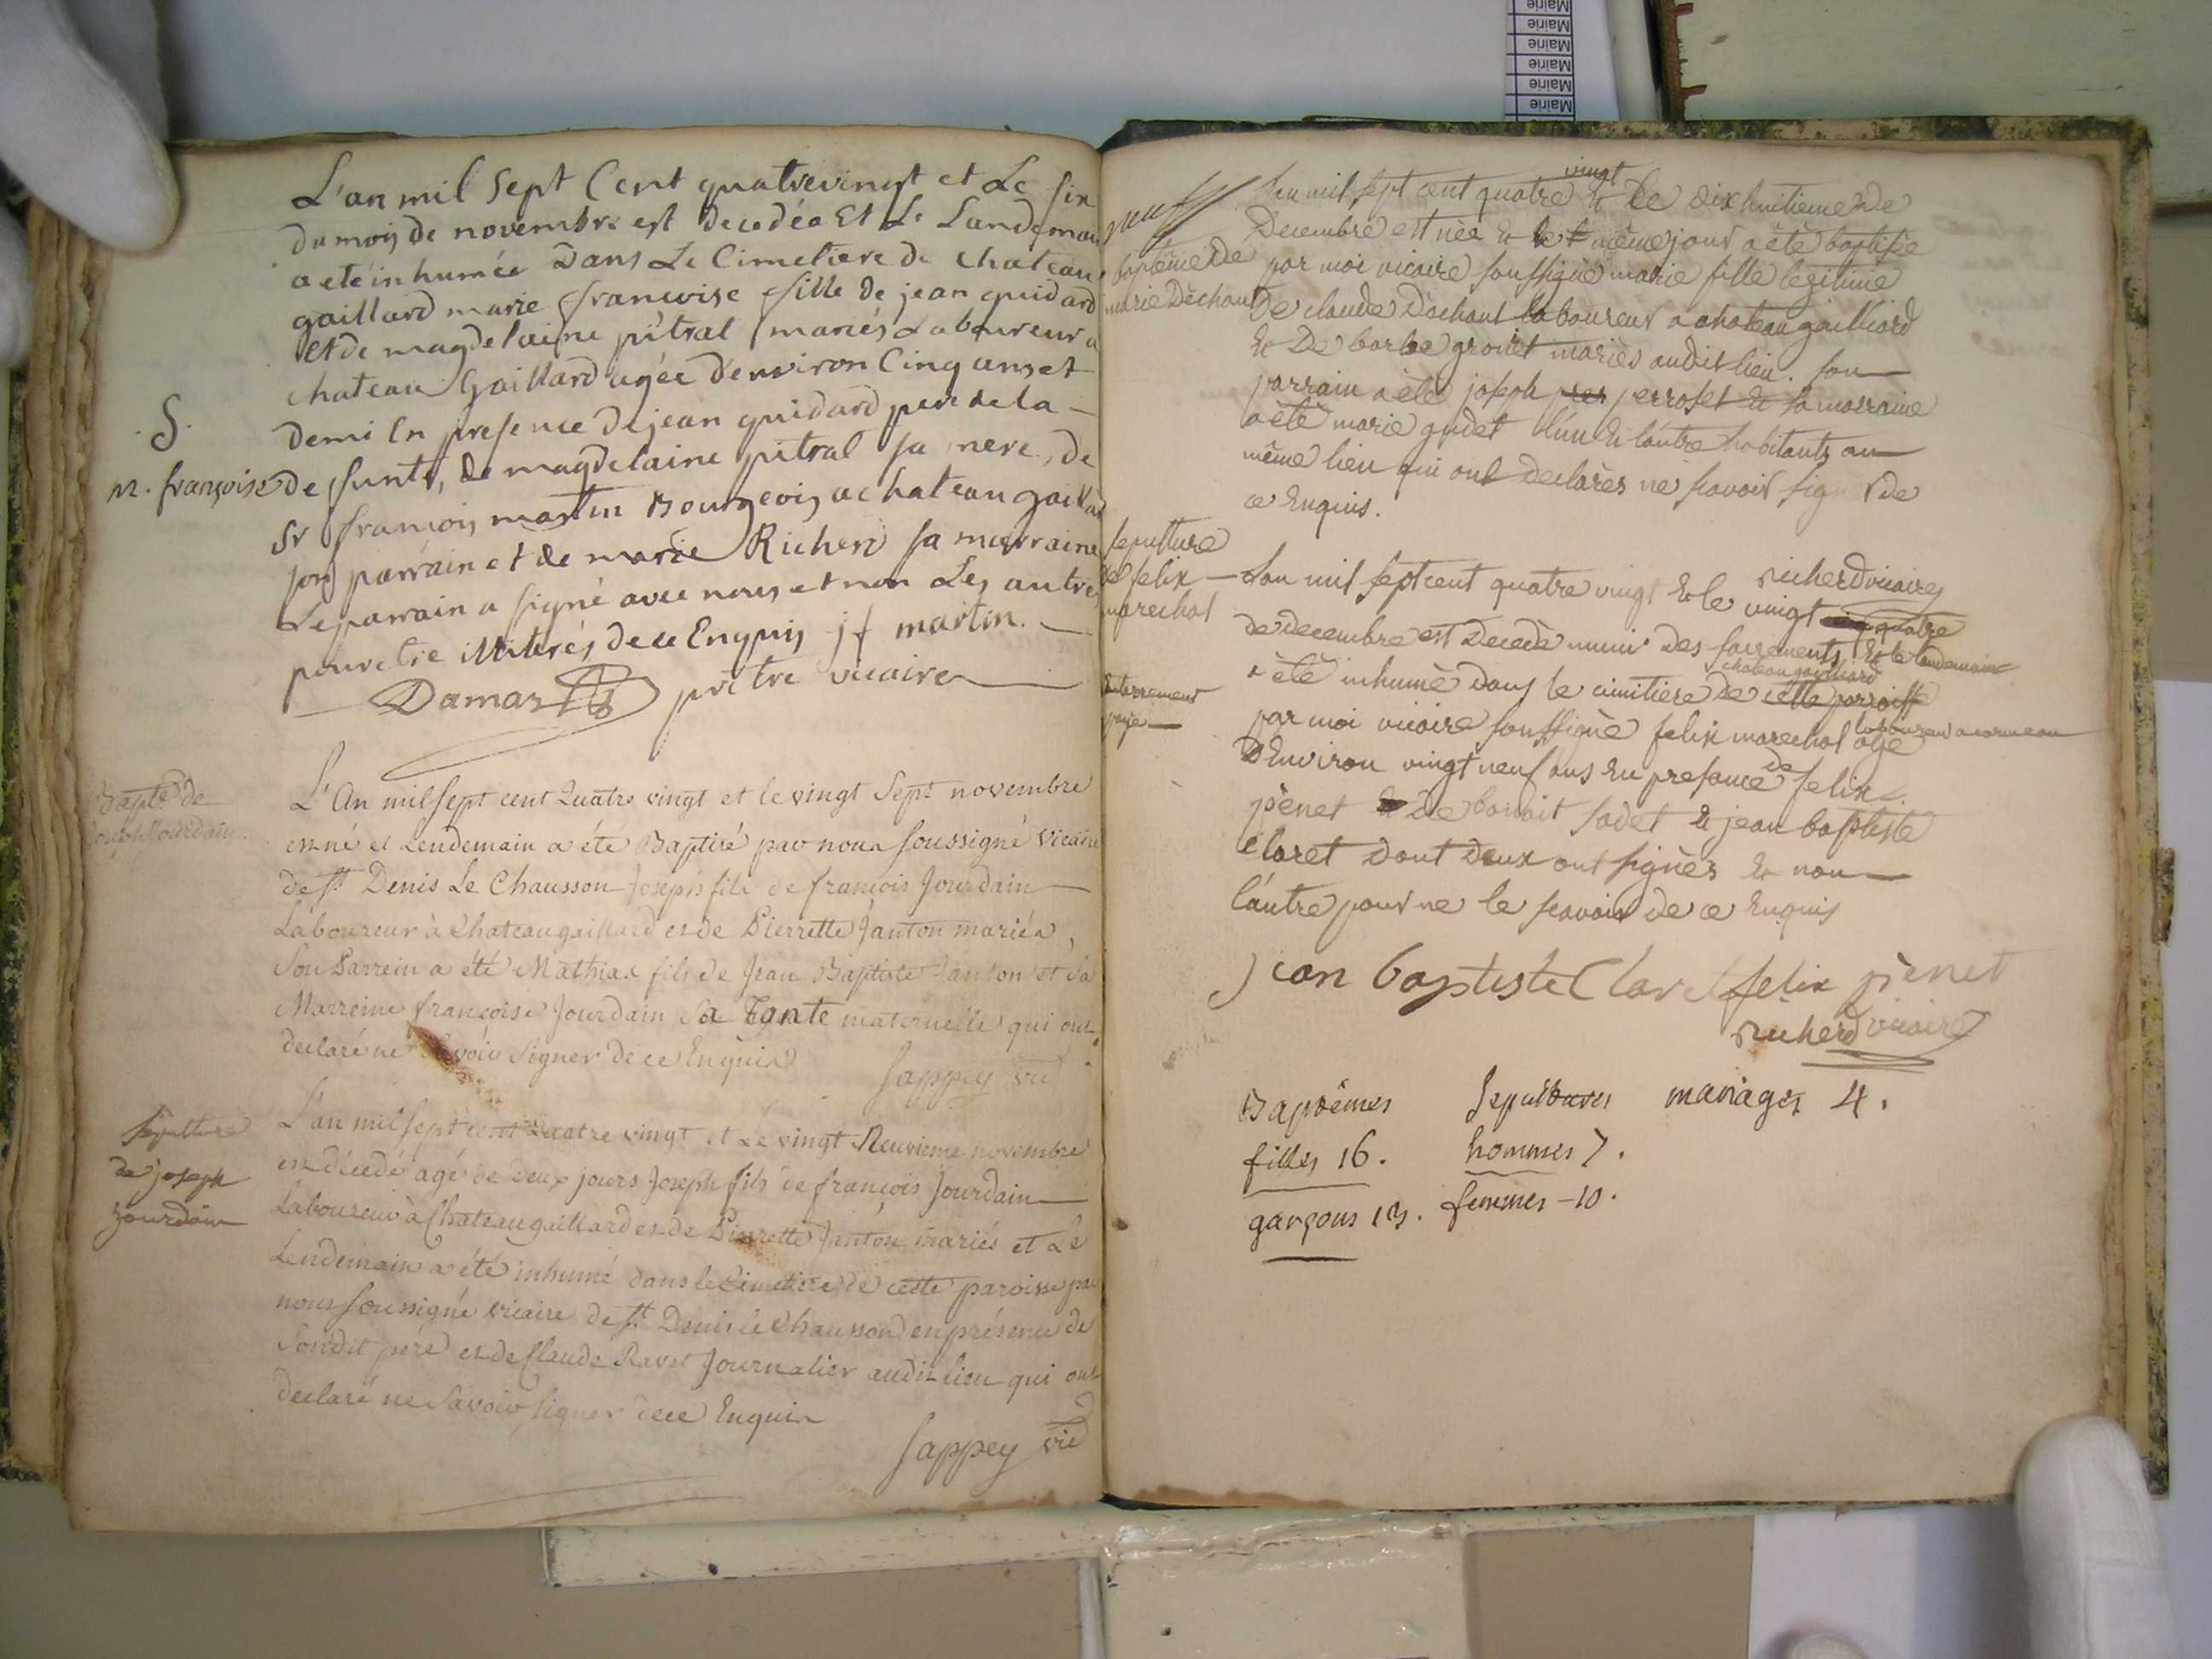 Mairie
Mairie
Mairie
Mairie
Mairie
Mairie
L'an mil Sept Cent quatrevingt et Le six
du mois de novembre est Decedée Et Le Landemain
a eté inhumée Dans Le Cimetiere de chateau
gaillard marie francoise fille de jean guidard
et de magdelaine pitral mariés Laboureur a
chateau Gaillard agée d'environ Cinq ans et
demi En presence de jean guidard pere de la
S.
m. françoise
defunte, de magdelaine pitral sa mere, de
sr francois martin Bourgeois a chateau gaillard
son parrain et de marie Richerd sa marraine
Le parrain a signé avec nous et non Les autres
pour etre illiterés de ce Enquis jf martin.
Damas prêtre vicaire
Bapte de
joseph Jourdain
L'An mil sept cent Quatre vingt et le vingt Sept novembre
est né et Lendemain a été Baptisé par nous soussigné Vicaire
de St Denis Le Chausson Joseph fils de francois Jourdain
Laboureur à Chateaugaillard et de Pierrette Janton mariés,
Son Parrein a été Mathias fils de Jean Baptiste Janton et sa
Marreine françoise Jourdain sa Tante maternelle qui ont
declaré ne savoir Signer de ce Enquis
Sappey vic
Sepulture
de joseph
jourdain
L'an mil sept cent Quatre vingt et Le vingt Neuvieme novembre
est décedé agé de deux jours Joseph fils de françois Jourdain
Laboureur à Chateaugaillard et de Pierrette Janton mariés et Le
Lendemain a été inhumé dans le Cimetiere de cette paroisse par
nous soussigné vicaire de St Denis le Chausson en présence de
Sondit pere et de Claude Ravet Journalier audit lieu qui ont
declaré ne Savoir signer de ce Enquis
Sappey vic
baptême de
marie Dèchaut
vingt
Lan mil sept cent quatre & le dix huitieme de
Decembre est nèe & le même jour a étè baptisèe
par moi vicaire soussignè marie fille legitime
De claude Dèchaut laboureur a chateau gailliard
& De barbe groiiet mariès audit lieu. son
parrain a étè joseph per perroset & sa marraine
a étè marie gudet l'un & l'autre habitants au
même lieu qui ont declarès ne scavoir signer de
ce Enquis.
richerd vicaire
sepulture
de felix
marechal
Lan mil sept cent quatre vingt & le vingt quatre
de decembre est Decedè muni des sacrements & le landemain
chateau gailliard
a étè inhumè dans le cimitiere de cette parroisse
enterrement
payè
par moi vicaire soussignè felix marechal laboureur a cormoz au
agè
D'Environ vingt neuf ans En presance de felix
pènet & De benoit sadet & jean baptiste
claret dont deux ont signès & non
l'autre pour ne le scavoir de ce Enquis
jean baptiste Claret felix pienet
richerd vicaire
Baptêmes Sepultures mariages 4.
filles 16. hommes 7.
garçons 13. femmes - 10.